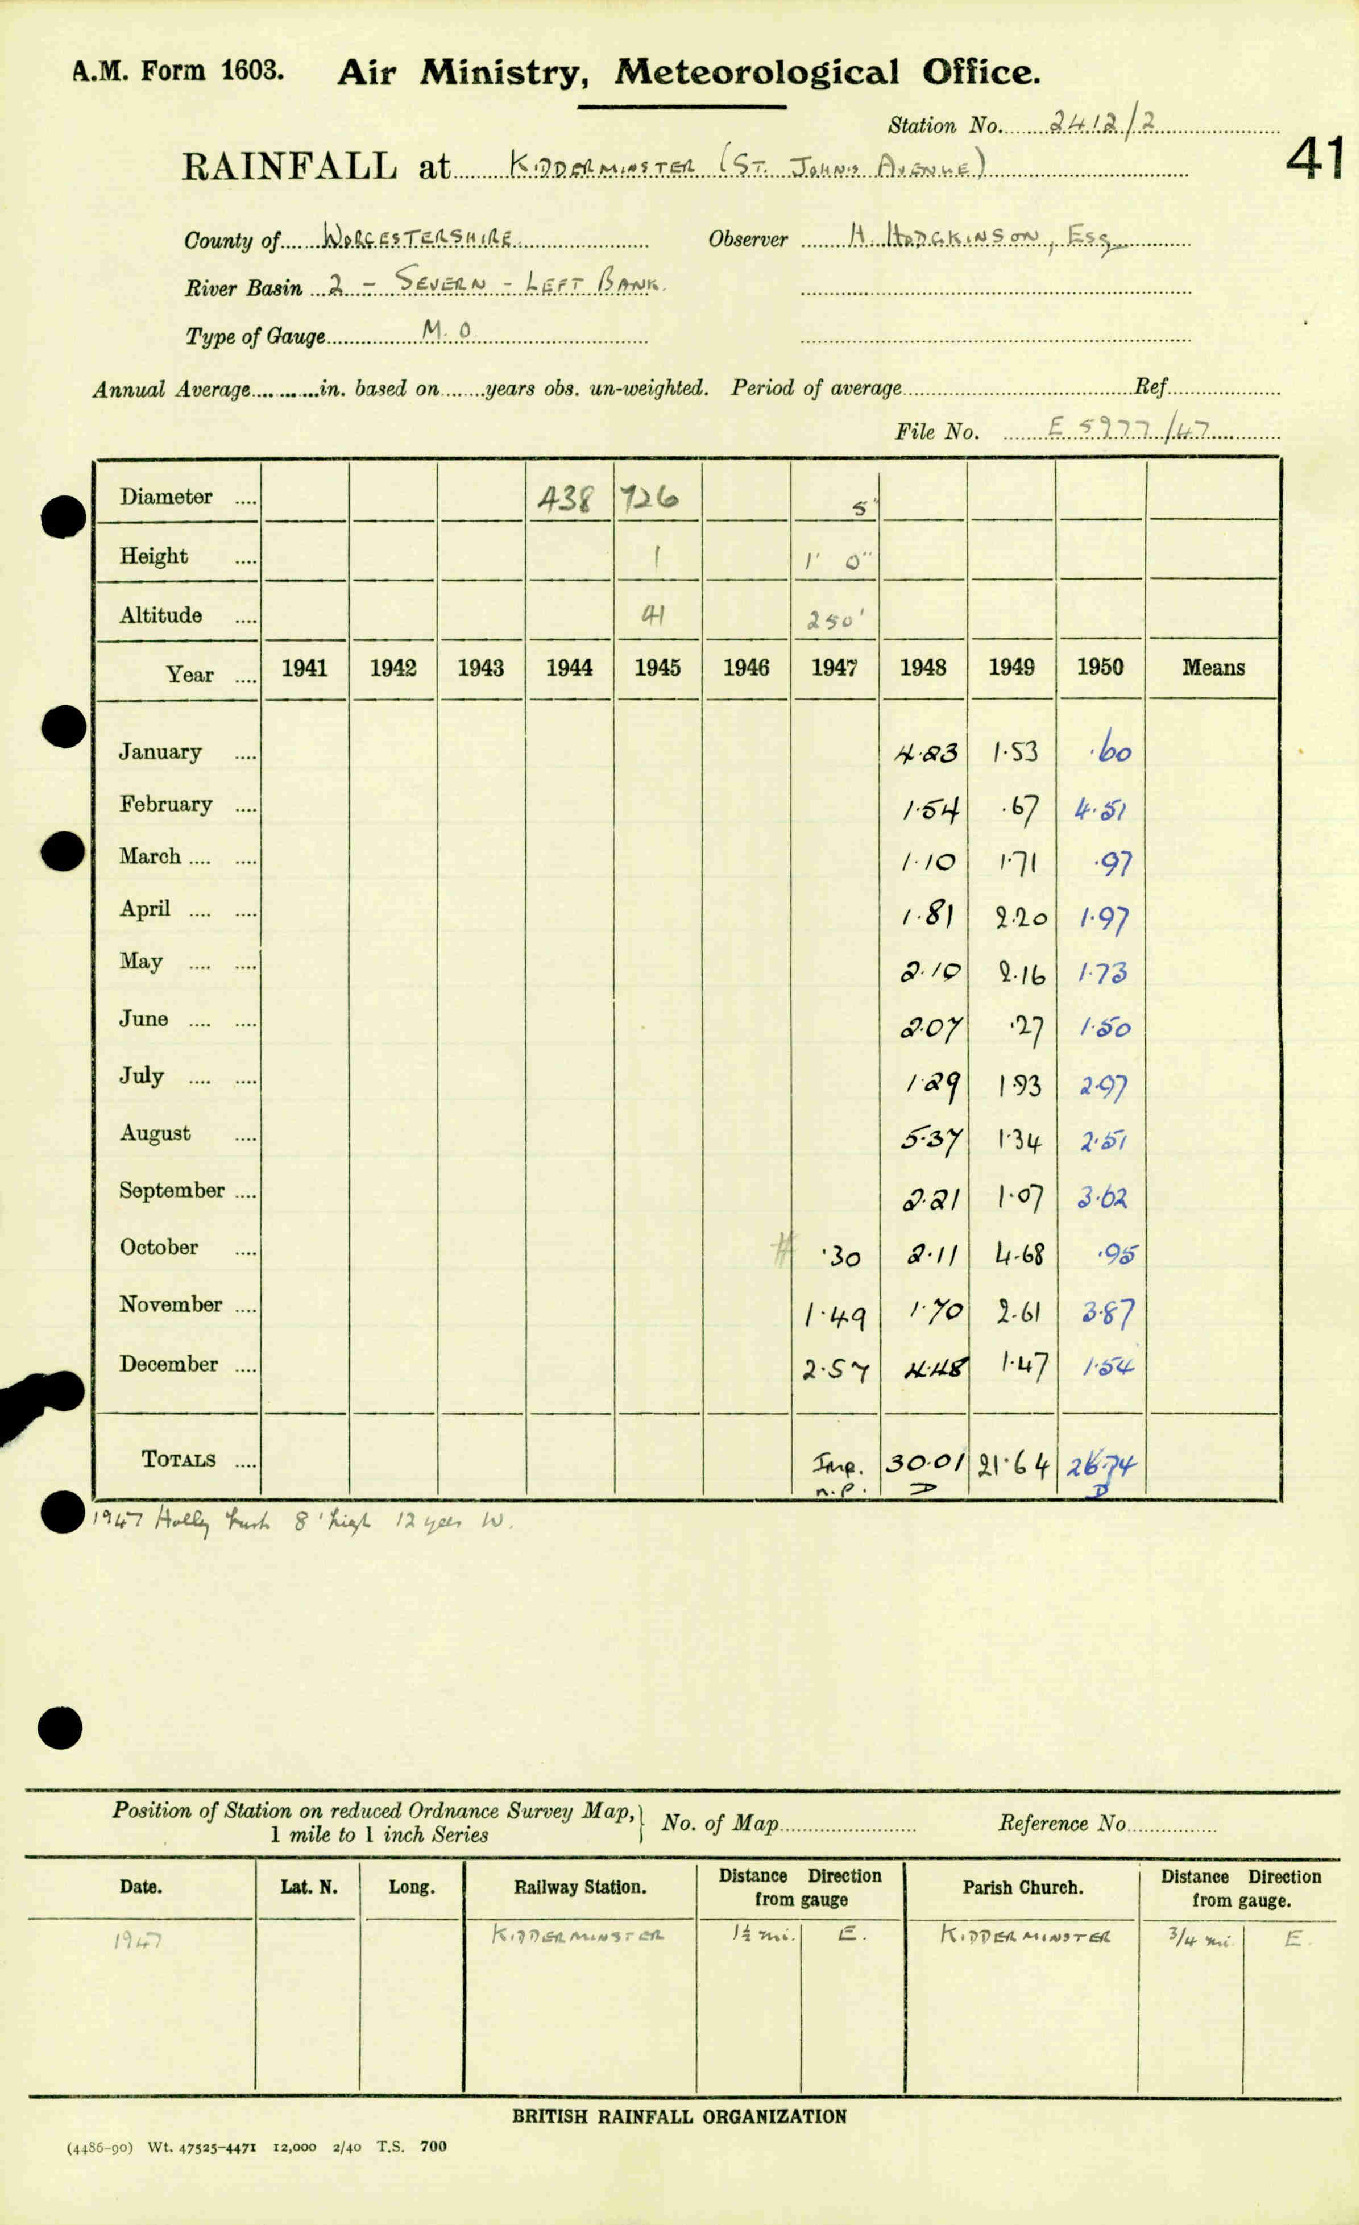 A.M. Form 1603. Air Ministry, Meteorological Office.
Station No. 2412/2
41
RAINFALL at KIDDERMINSTER (ST. JOHNS AVENUE)
County of WORCESTERSHIRE Observer H. HODGKINSON, ESQ
River Basin 2 - SEVERN - LEFT BANK.
Type of Gauge M.O
Annual Average in. based on years obs. un-weighted. Period of average Ref
File No. E 5977/47
Diameter .... 438 726 5"
Height .... 1 1' 0"
Altitude .... 41 250'
Year .... 1941 1942 1943 1944 1945 1946 1947 1948 1949 1950 Means
January .... 4.83 1.53 .60
February .... 1.54 .67 4.51
March .... .... 1.10 1.71 .97
April .... .... 1.81 2.20 1.97
May .... .... 2.10 2.16 1.73
June .... .... 2.07 .27 1.50
July .... .... 1.29 1.93 2.97
August .... 5.37 1.34 2.51
September .... 2.21 1.07 3.62
October .... # .30 2.11 4.68 .95
November .... 1.49 1.70 2.61 3.87
December .... 2.57 4.48 1.47 1.54
TOTALS .... Imp. 30.01 21.64 26.74
n.p. D D
1947 Holly bush 8' high 12 W.
Position of Station on reduced Ordnance Survey Map,
1 mile to 1 inch Series } No. of Map Reference No
Date. Lat. N. Long. Railway Station. Distance Direction from gauge Parish Church. Distance Direction from gauge.
1947 KIDDERMINSTER 1½ mi. E. KIDDERMINSTER 3/4 mi. E.
BRITISH RAINFALL ORGANIZATION
(4486-90) Wt. 47525-4471 12,000 2/40 T.S. 700